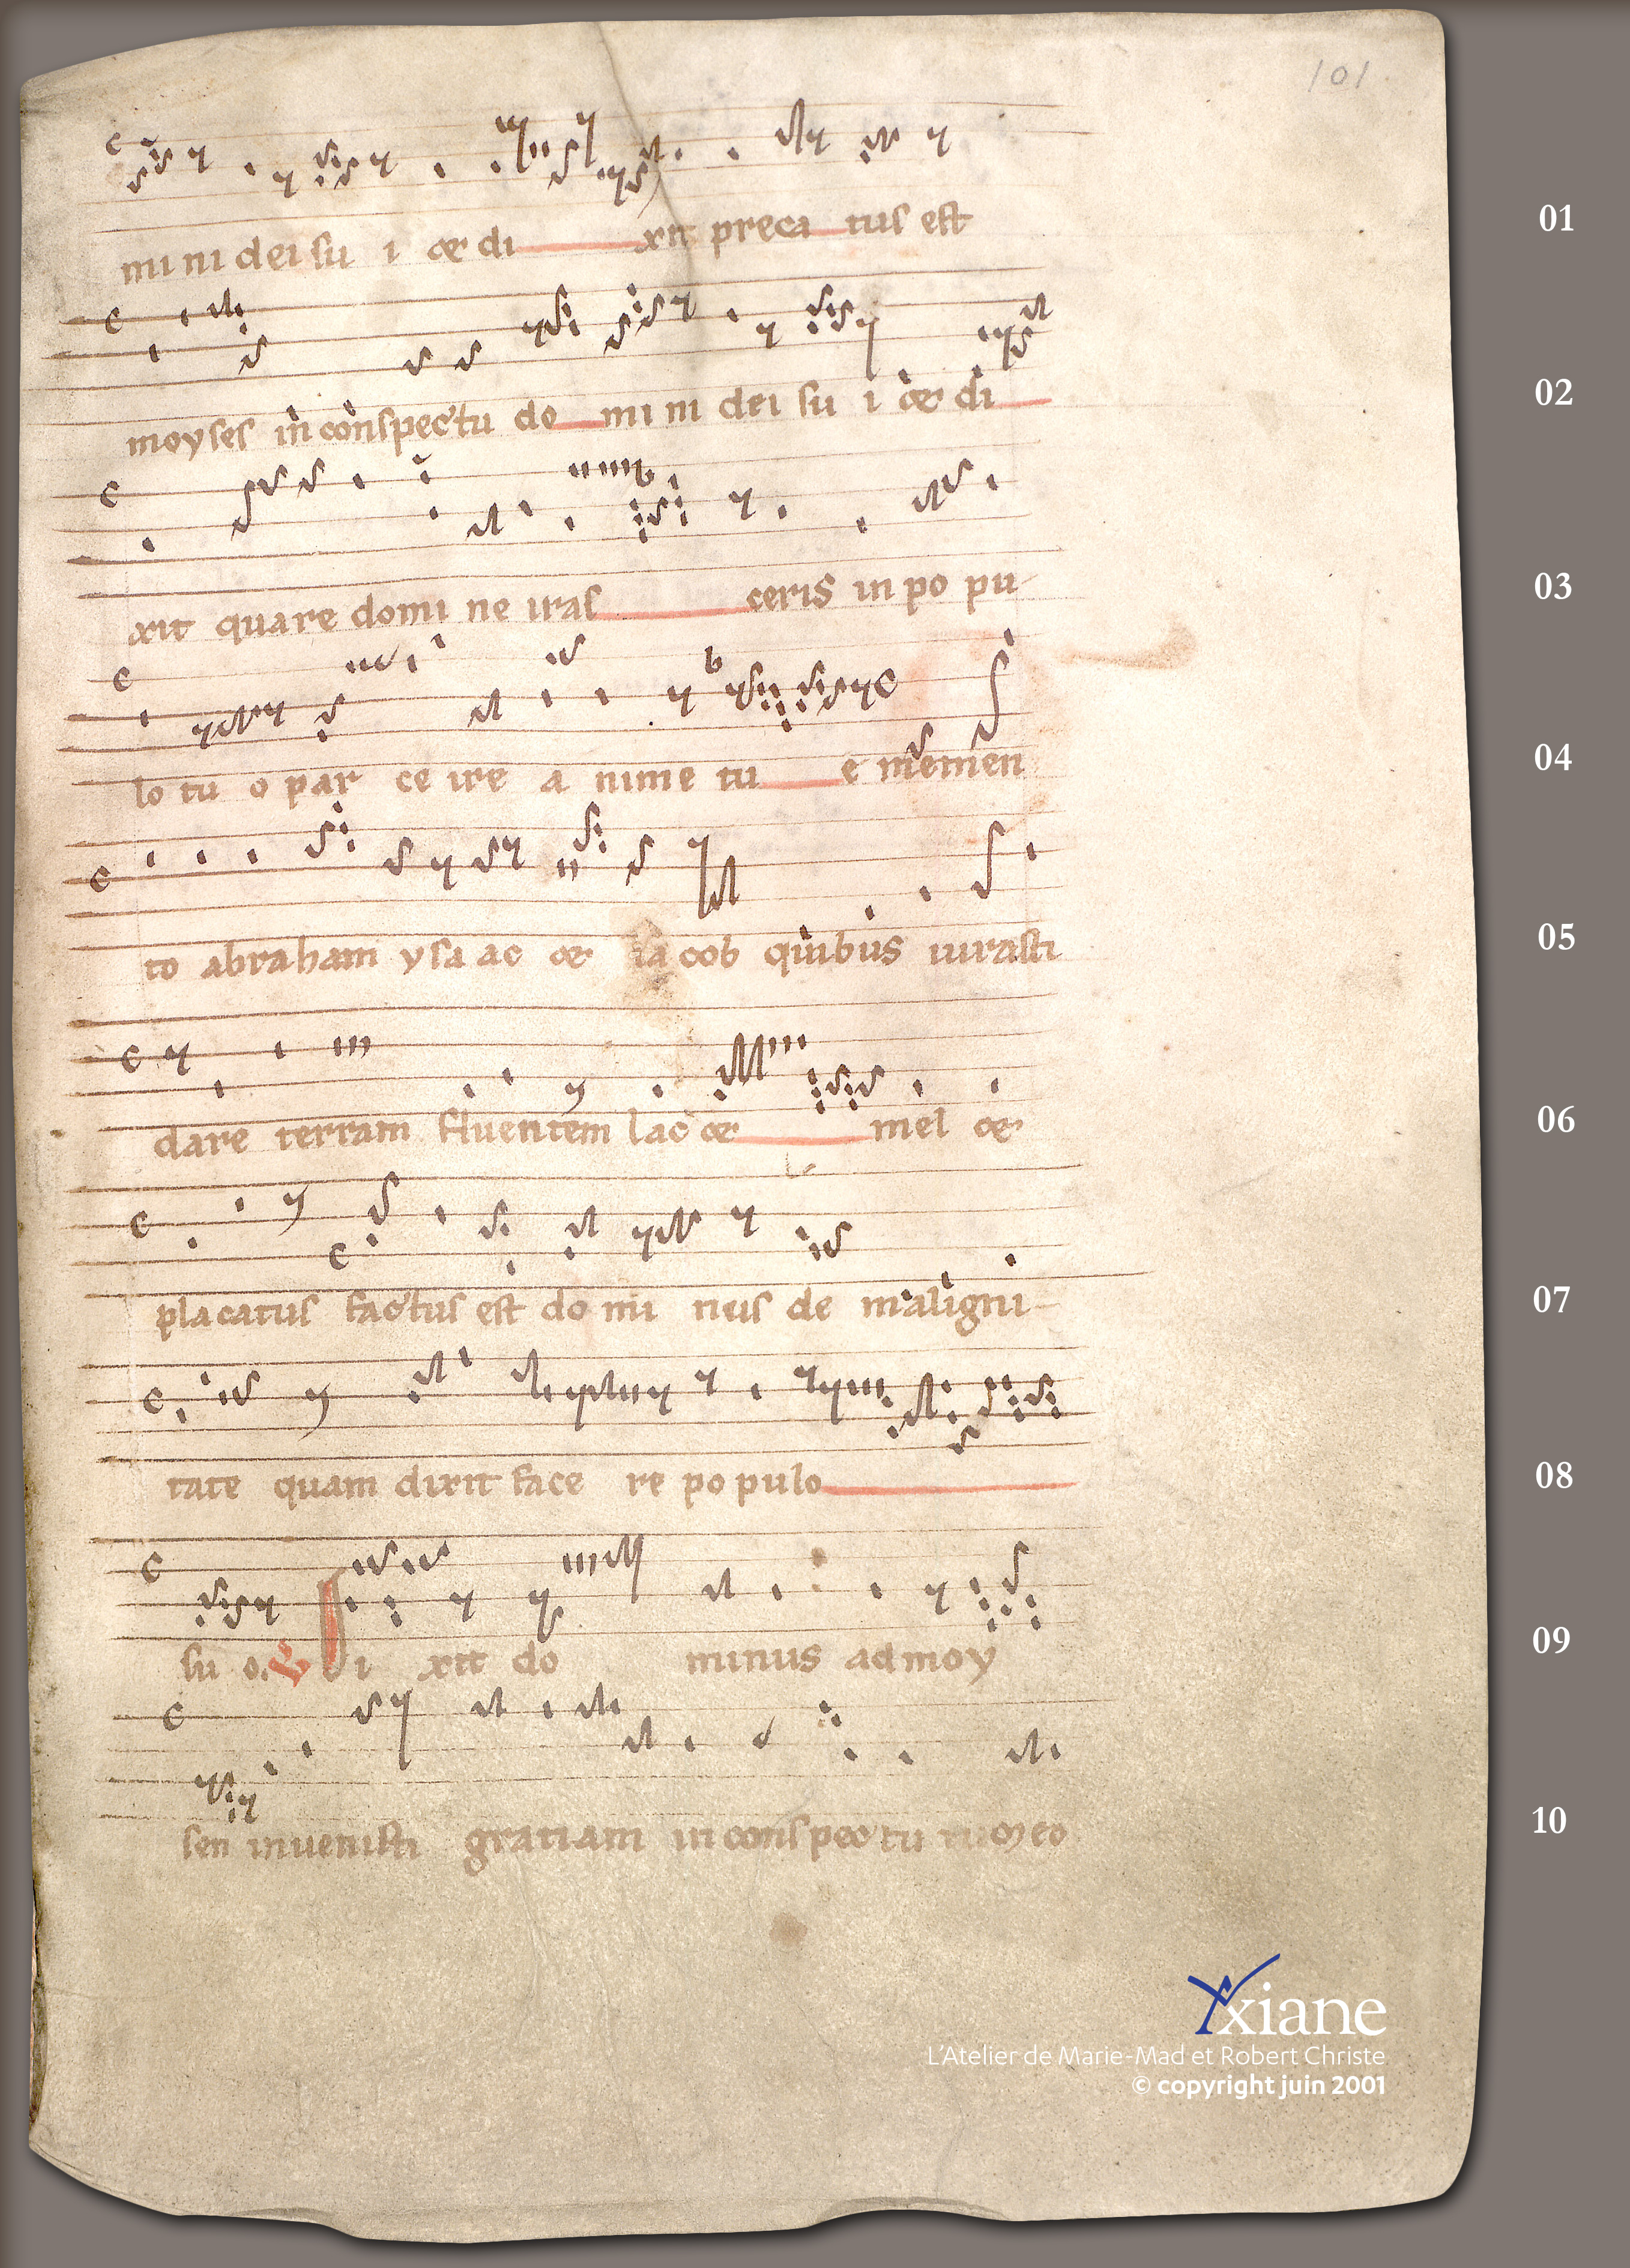 101
mi ni dei su i & di xit preca tus est
01
moyses in conspectu do mi ni dei su i & di
02
xit quare domi ne iras ceris in po pu-
03
lo tu o par ce ire a nime tu e memen
04
to abraham ysa ac & ia cob quibus iurasti
05
dare terram fluentem lac & mel &
06
placatus factus est do mi nus de maligni-
07
tate quam dixit face re po pulo
08
su o. V Di xit do minus ad moy
09
sen invenisti gratiam in conspec tu meo
10
Yxiane
L'Atelier de Marie-Mad et Robert Christe
© copyright juin 2001